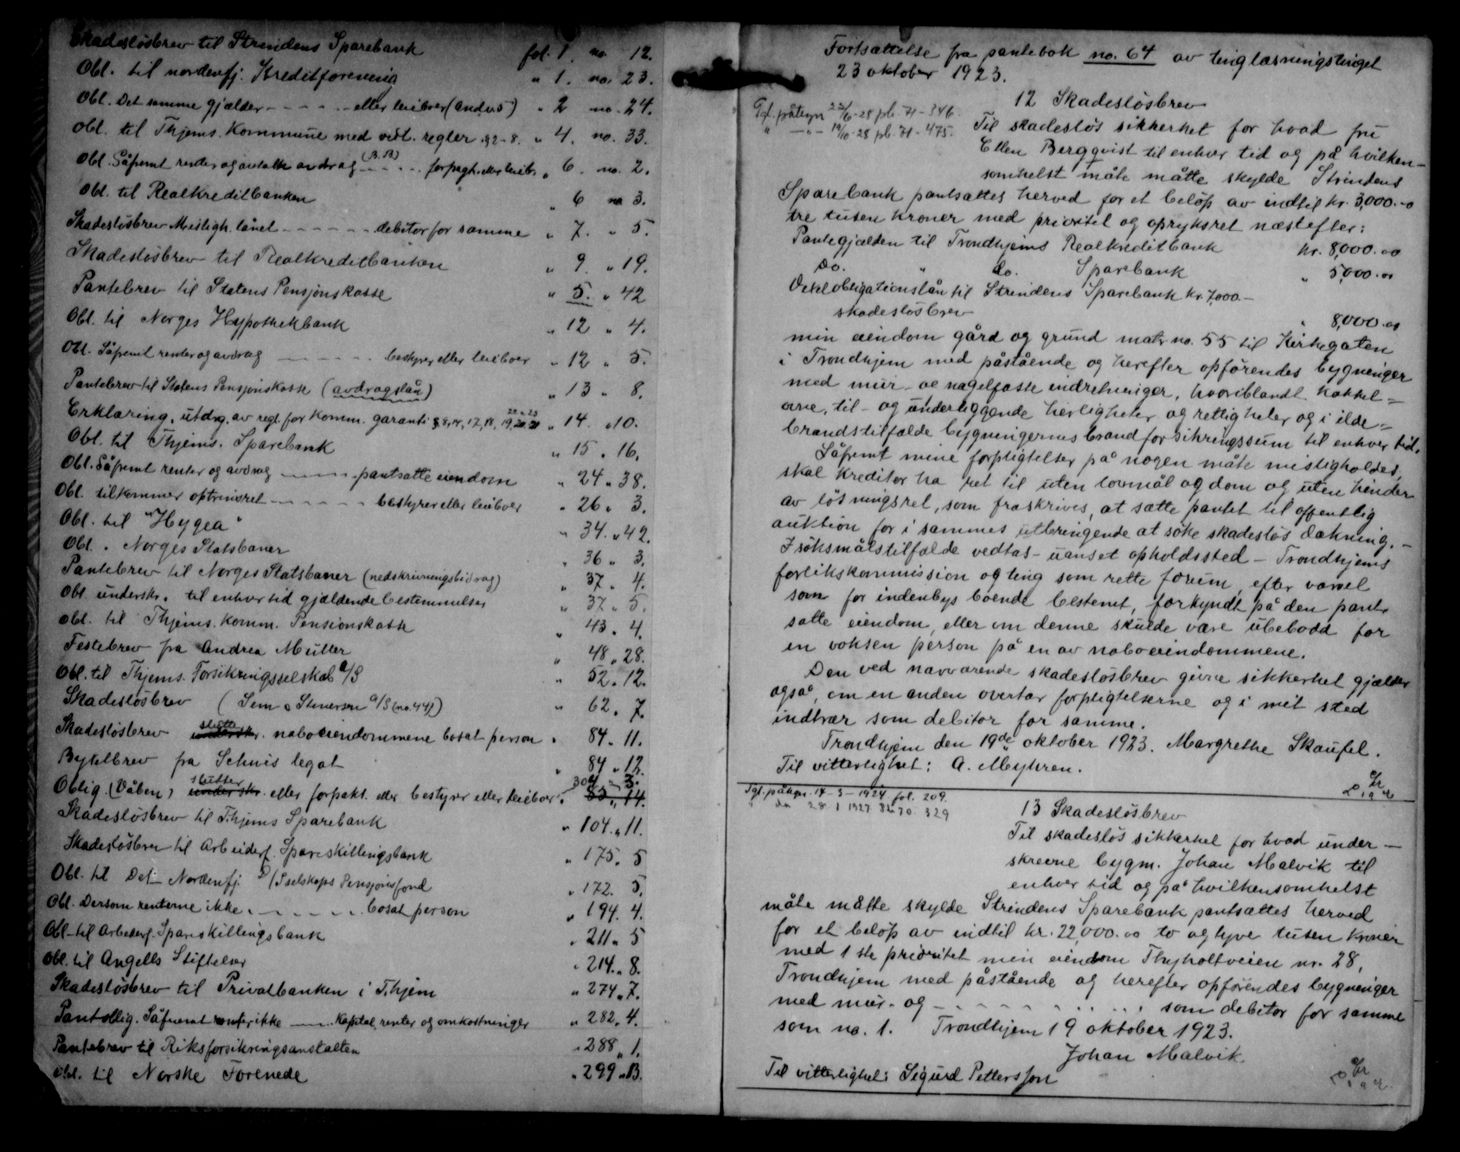 Skadesløsbrev til Strindens Sparebank fol. 1. no 12.
Obl. til nordenfj. Kreditforening " 1. no. 23.
Obl. Det samme gjælder - - - - - eller leiboer (andres) " 2 no. 24.
Obl. til Thjems. Kommune med vedt. regler §2-8. " 4. no. 33.
Obl. Såfremt renter og avtalte avdrag - - - - forpagt. eller leieb. " 6. no. 2.
Obl. til Realkreditbanken " 6 no 3.
Skadesløsbrev Misligh. lånet - - - - - - debitor for samme " 7. " 5.
Skadesløsbrev til Realkreditbanken " 9. " 19.
Pantebrev til Statens Pensjonskasse " 5. " 42
Obl. til Norges Hypothekbank " 12 " 4.
Obl. Såfremt renter og avdrag - - - - - bestyrer eller leieboer " 12 " 5.
Pantebrev til Statens Pensjonskasse (avdragslån) " 13 " 8.
Erklæring, utdrg. av regl. for komm. garanti " 14. " 10.
Obl. til Thjems. Sparebank " 15 " 16.
Obl. Såfremt renter og avdrag - - - - pantsatte eiendom " 24 " 38.
Obl. tilkommer optrinsret - - - - - bestyrer eller leieboer " 26 " 3.
Obl. til "Hygea" " 34. " 42.
Obl. " Norges Statsbaner " 36 " 3.
Pantebrev til Norges Statsbaner (nedskrivningsbidrag) " 37 " 4.
Obl. underskr. til enhver tid gjældende bestemmelser " 37 " 5.
Obl. til Thjems. Komm. Pensionskasse " 43 " 4.
Festebrev fra Andrea Müller " 48 " 28.
Obl. til Thjems. Forsikringsselskab a/S " 52 " 12.
Skadesløsbrev (Sem & Stenersen a/S (no. 44)) " 62 " 7.
Skadesløsbrev slutter naboeiendommene bosat person " 84 " 11.
Bygselbrev fra Schnis legat " 84 " 12.
Oblig. (Våben) slutter eller forpakt. eller bestyrer eller leieboer. 304 3.
Skadesløsbrev til Thjems Sparebank " 104 " 11.
Skadesløsbrev til Arbeiderf. Spareskillingsbank " 175 " 5
Obl. til Det Nordenfj. D/Sselskaps Pensjonsfond " 172. 5.
Obl. Dersom renterne ikke - - - - - bosat person " 194. 4.
Obl. til Arbeiderf. Spareskillingsbank " 211 " 5
Obl. til Angells Stiftelser " 214 " 8.
Skadesløsbrev til Privatbanken i T.hjem " 274 " 7.
Pantoblig. Såfremt renter ikke - - - - Kapital, renter og omkostninger " 282 " 4.
Pantebrev til Riksforsikringsanstalten " 288 " 1.
Obl. til Norske Forenede " 299 " 13.
Fortsættelse fra pantebok no. 64 av tinglæsningstinget
23 oktober 1923.
12 Skadesløsbrev
Tgl. påtegn 22/6-28 pb. 71-346.
" - " - 19/10-28 pb 71-475.
Til skadesløs sikkerhet for hvad fru
Ellen Bergqvist til enhver tid og på hvilken-
somhelst måte måtte skylde Strindens
Sparebank pantsættes herved for et beløp av indtil kr. 3,000.-o
tre tusen kroner med prioritet og opryksret næstefter:
Pantegjælden til Trondhjems Realkreditbank kr. 8,000.-oo
Do. " do. Sparebank " 5,000.-oo
Vekselobligationslån til Strindens Sparebank kr 7,000.-
skadesløsbrev " 8,000.-oo
min eiendom gård og grund matr. no. 55 til Kirkegaten
i Trondhjem med påstående og herefter opførendes bygninger
med mur- og nagelfaste indretninger, hvoriblandt kakkel=
ovne, til- og underliggende herligheter og rettigheter og i ilde=
brandstilfælde bygningernes brandforsikringssum til enhver tid.
Såfremt mine forpligtelser på nogen måte misligholdes,
skal kreditor ha ret til uten lovmål og dom og uten hinder
av løsningsret, som fraskrives, at sætte pantet til offentlig
auktion for i sammes utbringende at søke skadesløs dækning. -
I søksmålstilfælde vedtas - uanset opholdssted - Trondhjems
forlikskommission og ting som rette forum, efter varsel
som for indenbys boende bestemt, forkyndt på den pant-
satte eiendom, eller om denne skulde være ubebodd for
en voksen person på en av naboeiendommene.
Den ved nærværende skadesløsbrev givne sikkerhet gjælder
også, om en anden overtar forpligtelserne og i mit sted
indtrær som debitor for samme.
Trondhjem den 19de oktober 1923. Margrethe Skaufel.
Til vitterlighet: A. Myhren.
Tgl. påtegn. 14-3-1924 fol. 209.
13 Skadesløsbrev
Til skadesløs sikkerhet for hvad under-
skrevne bygm. Johan Malvik til
enhver tid og på hvilkensomhelst
måte måtte skylde Strindens Sparebank pantsættes herved
for et beløp av indtil kr. 22,000.oo to og tyve tusen kroner
med 1ste prioritet min eiendom Thyholtveien nr. 28,
Trondhjem med påstående og herefter opførendes bygninger
med mur- og - - - - - - - - som debitor for samme
som no. 1. Trondhjem 19 oktober 1923.
Johan Malvik.
Til vitterlighet: Sigurd Pettersson